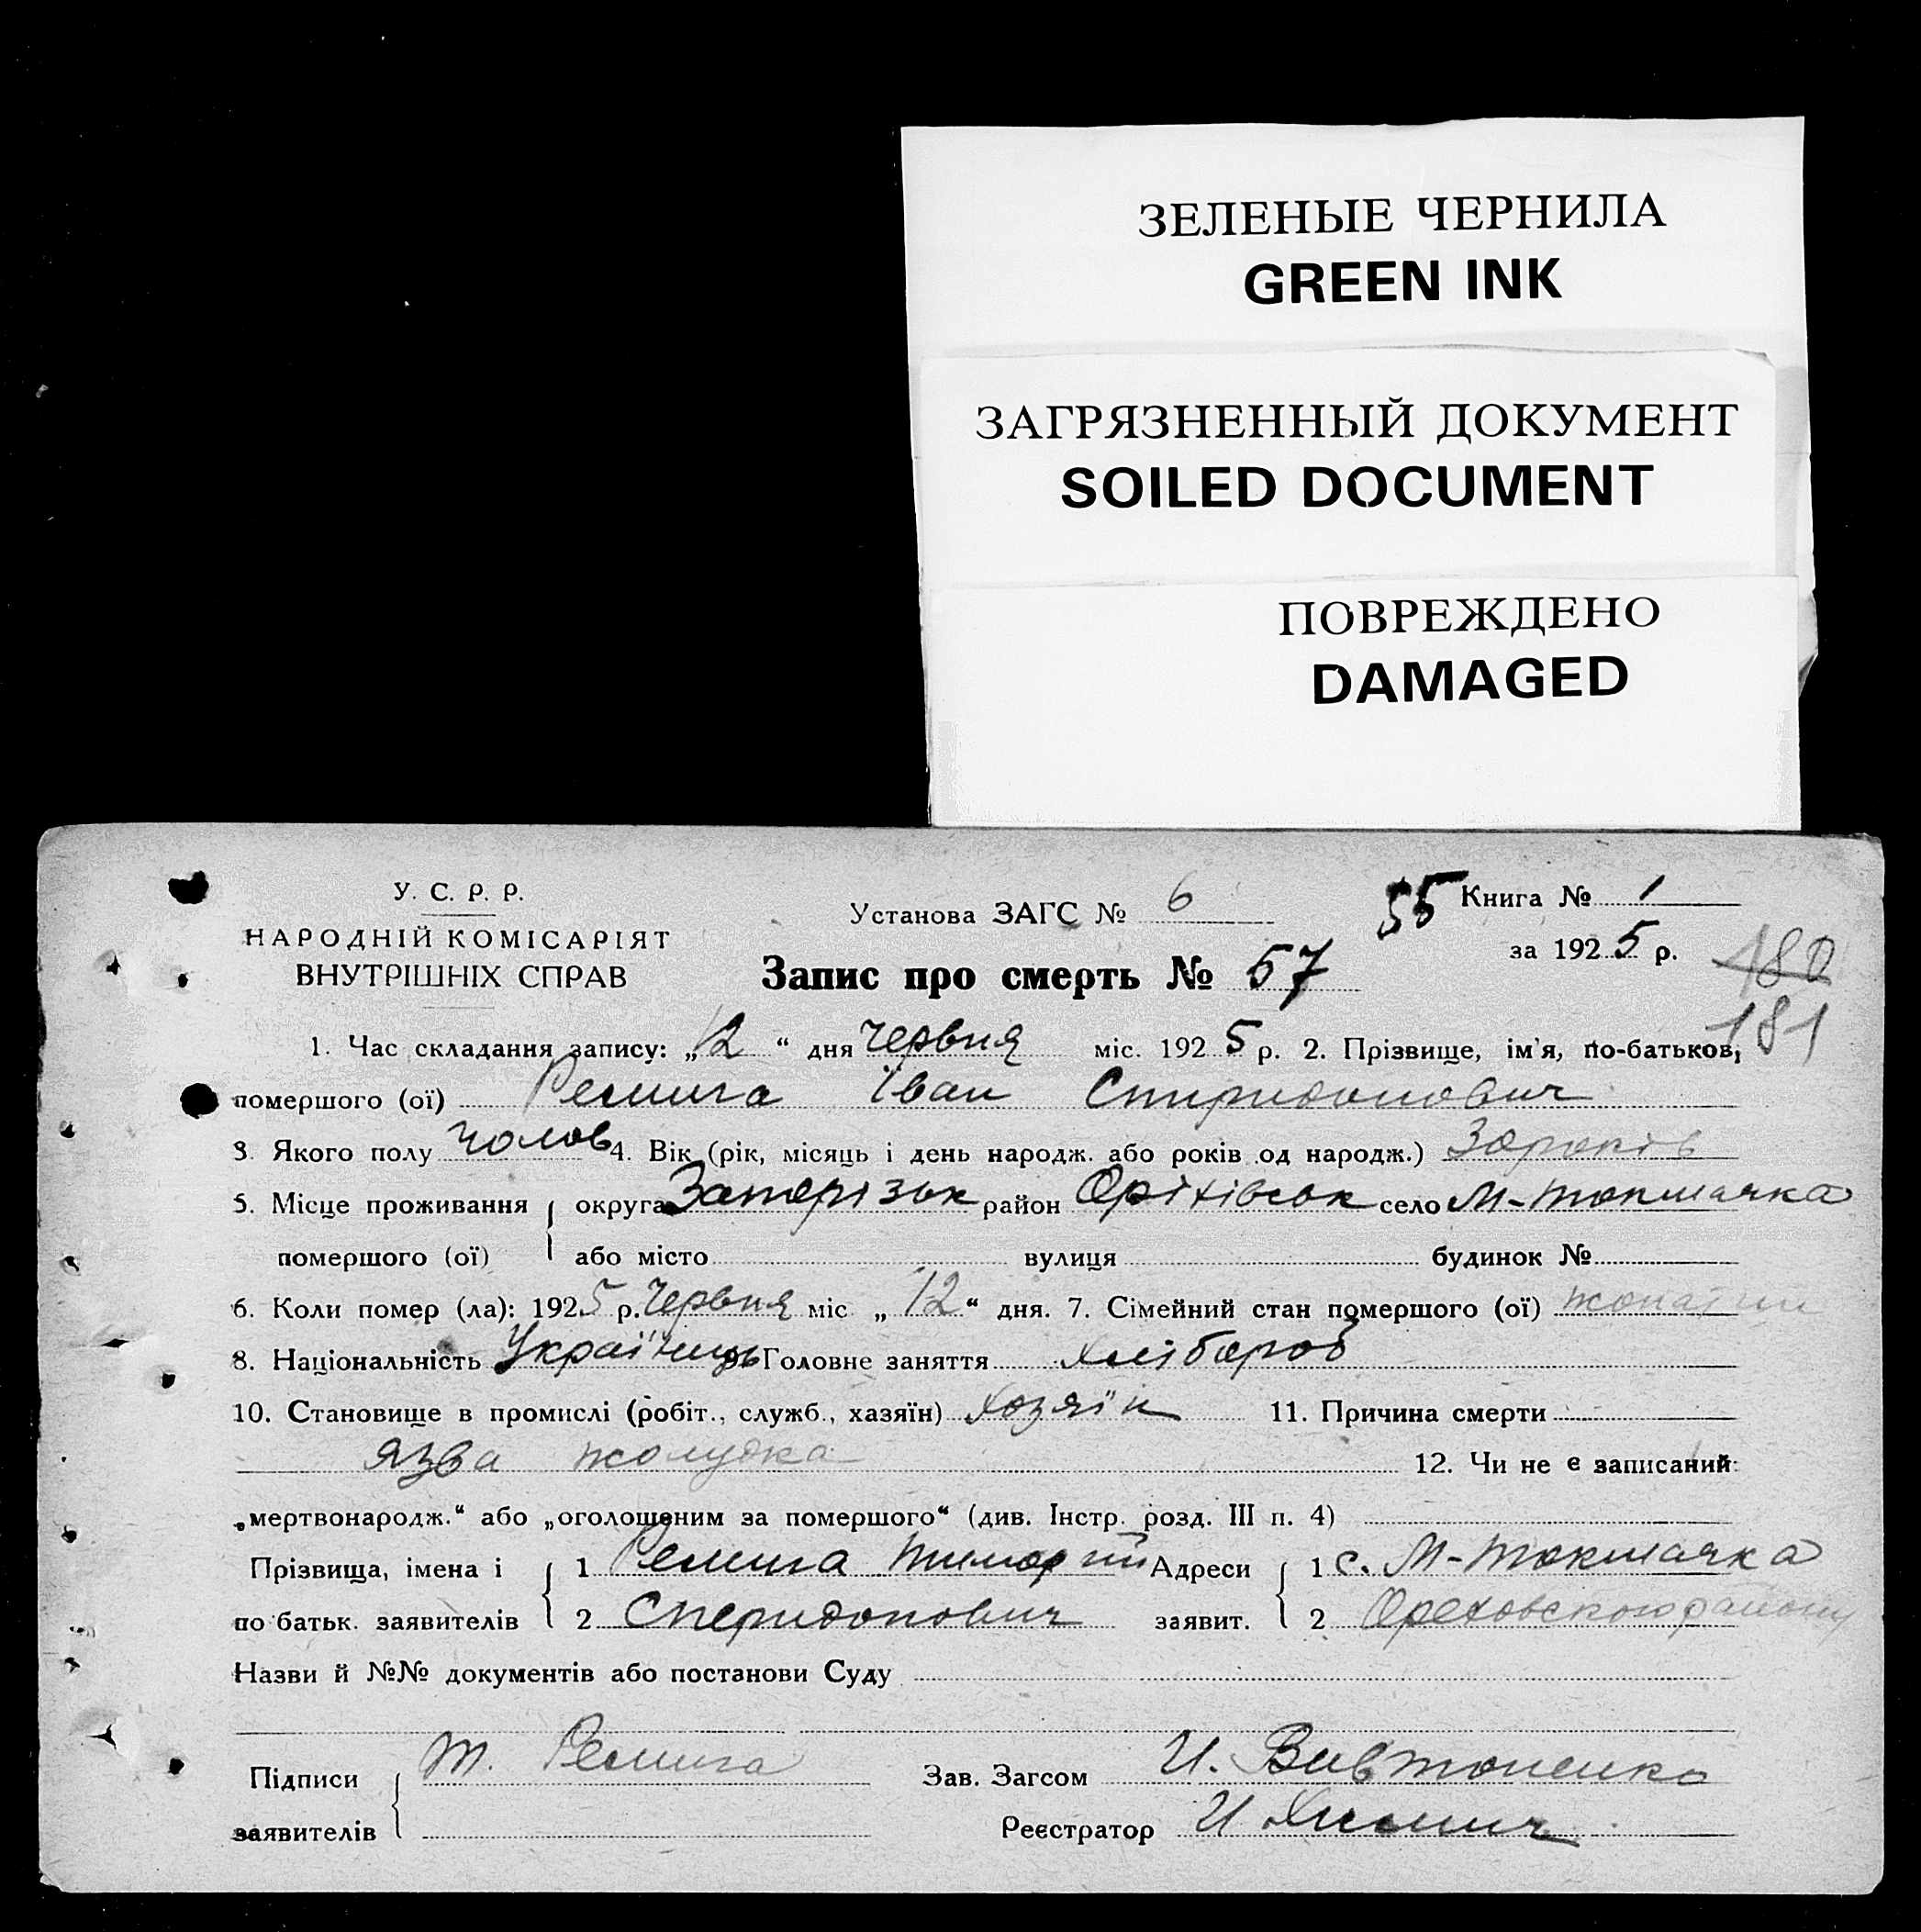 ЗЕЛЕНЫЕ ЧЕРНИЛА
GREEN INK
ЗАГРЯЗНЕННЫЙ ДОКУМЕНТ
SOILED DOCUMENT
ПОВРЕЖДЕНО
DAMAGED
У. С. Р. Р.
НАРОДНІЙ КОМІСАРІЯТ
ВНУТРІШНІХ СПРАВ
Установа ЗАГС № 6
55 Книга № 1
за 1925 р.
180
181
Запис про смерть № 57
1. Час складання запису: „12“ дня Червня міс. 1925 р. 2. Прізвище, ім'я, по-батьков,
помершого (ої) Ремига Іван Спиридонович
3. Якого полу чолов 4. Вік (рік, місяць і день народж. або років од народж.) 30 років
5. Місце проживання округа Запорізьк район Оріхівськ село М-токмачка
помершого (ої) або місто вулиця будинок №
6. Коли помер (ла): 1925 р. Червня міс „12“ дня. 7. Сімейний стан помершого (ої) жонатий
8. Національність Українець 9. Головне заняття хлібороб
10. Становище в промислі (робіт., служб., хазяїн) хозяїн 11. Причина смерти
язва жолудка 12. Чи не є записаний:
„мертвонародж.“ або „оголошеним за помершого“ (див. Інстр. розд. III п. 4)
Прізвища, імена і 1 Ремига Адреси 1 с. М-токмачка
по батьк. заявителів 2 Сперидонович заявит. 2 Ореховского району
Назви й №№ документів або постанови Суду
Підписи Т. Ремига Зав. Загсом И. Вивтоненко
заявителів Реєстратор И